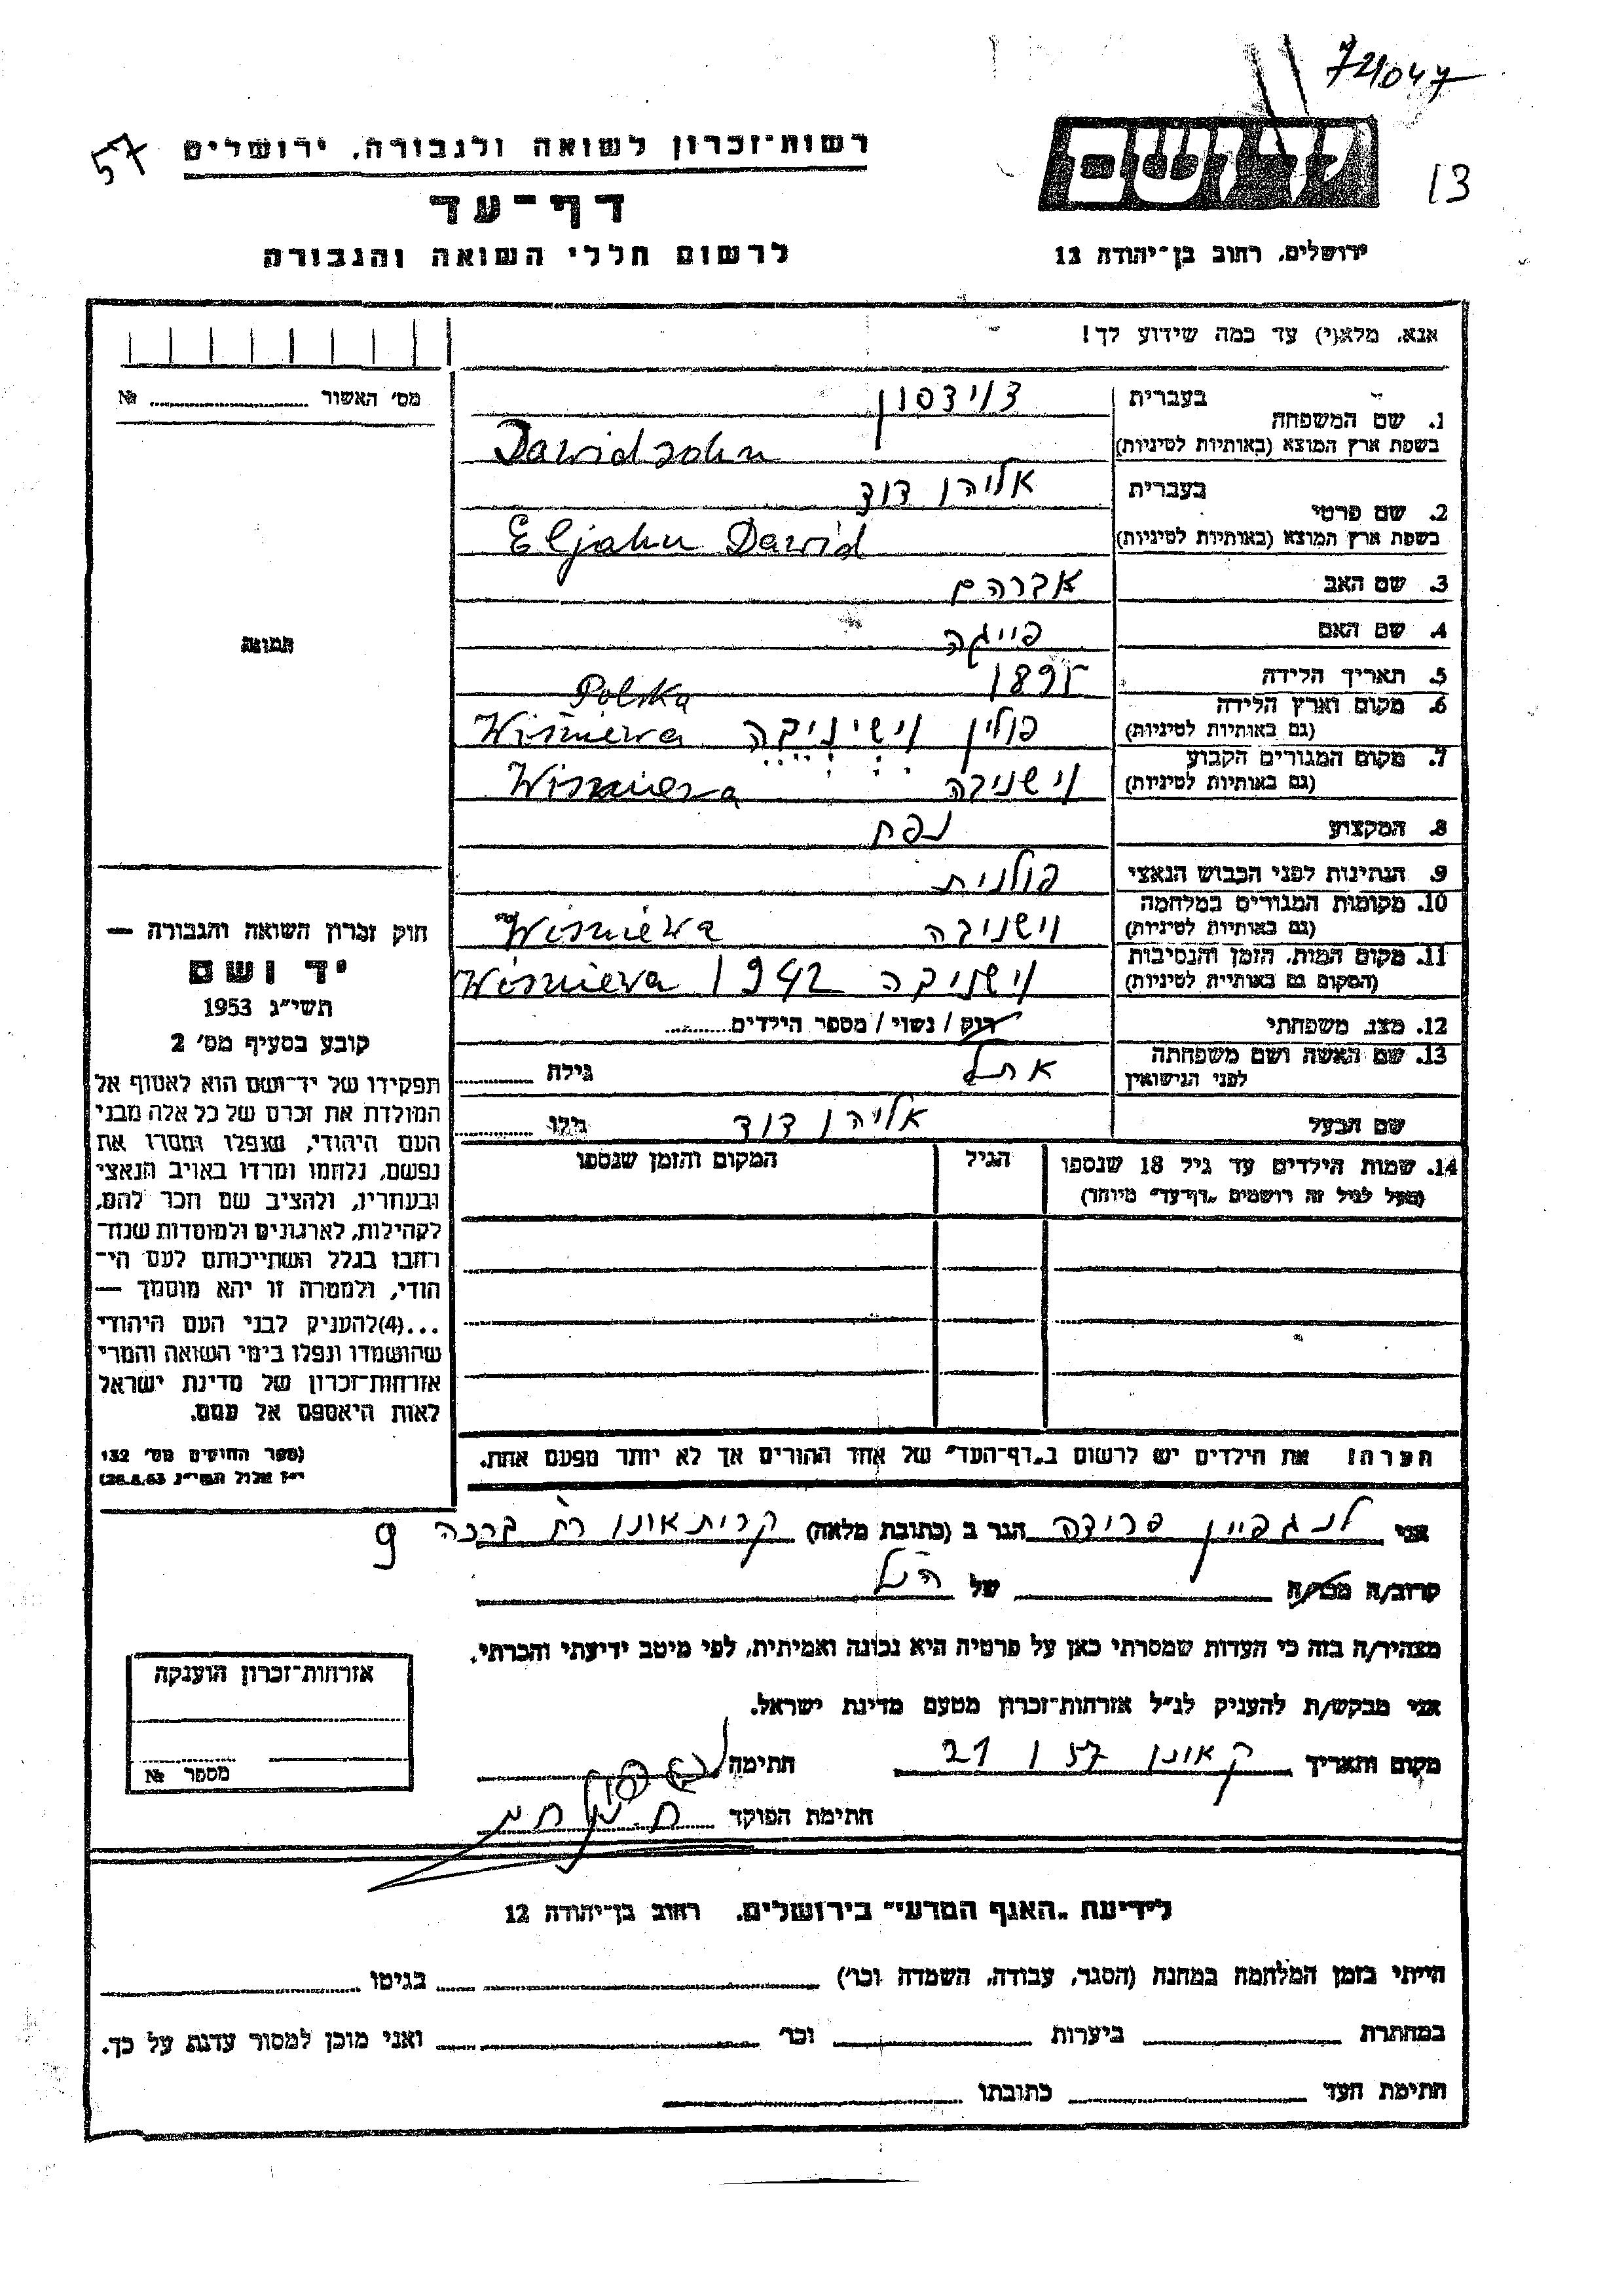 72047
57
רשות־זכרון לשואה ולגבורה, ירושלים
13
דף־עד
לרשום חללי השואה והגבורה
ירושלים, רחוב בן־יהודה 12
אנא, מלא(י) עד כמה שידוע לך!
מס' האשור № 
1. שם המשפחה
בעברית דוידסון
בשפת ארץ המוצא (באותיות לטיניות) Dawidsohn
2. שם פרטי
בעברית אליהו דוד
בשפת ארץ המוצא (באותיות לטיניות) Eljahu Dawid
3. שם האב אברהם
4. שם האם פייגה
5. תאריך הלידה 1895
6. מקום וארץ הלידה
(גם באותיות לטיניות) פולין וישניבה Wiśniewa Polska
7. מקום המגורים הקבוע
(גם באותיות לטיניות) וישניבה Wiszniewa
8. המקצוע נפח
9. הנתינות לפני הכבוש הנאצי פולנית
10. מקומות המגורים במלחמה
(גם באותיות לטיניות) וישניבה Wiśniewa
11. מקום המות, הזמן והנסיבות
(המקום גם באותיות לטיניות) וישניבה 1942 Wiśniewa
12. מצב משפחתי רוק / נשוי / מספר הילדים
13. שם האשה ושם משפחתה
לפני הנישואין אתל גילה
שם הבעל אליהו דוד גילו
14. שמות הילדים עד גיל 18 שנספו הגיל המקום והזמן שנספו
(מעל לגיל זה רושמים "דף־עד" מיוחד)
הערה! את הילדים יש לרשום ב"דף־העד" של אחד ההורים אך לא יותר מפעם אחת.
תמונה
חוק זכרון השואה והגבורה —
יד ושם
תשי"ג 1953
קובע בסעיף מס' 2
תפקידו של יד־ושם הוא לאסוף אל
המולדת את זכרם של כל אלה מבני
העם היהודי, שנפלו ומסרו את
נפשם, נלחמו ומרדו באויב הנאצי
ובעוזריו, ולהציב שם וזכר להם,
לקהילות, לארגונים ולמוסדות שנח־
רבו בגלל השתייכותם לעם הי־
הודי, ולמטרה זו יהא מוסמך —
...(4)להעניק לבני העם היהודי
שהושמדו ונפלו בימי השואה והמרי
אזרחות־זכרון של מדינת ישראל
לאות היאספם אל עמם.
(ספר החוקים מס' 132
י"ז אלול תשי"ג 28.8.53)
אני לנגפיין פרידה הגר ב (כתובת מלאה) קרית אונו רח ברכה 9
קרוב/ה מכר/ה של הנ"ל
מצהיר/ה בזה כי העדות שמסרתי כאן על פרטיה היא נכונה ואמיתית, לפי מיטב ידיעתי והכרתי.
אני מבקש/ת להעניק לנ"ל אזרחות־זכרון מטעם מדינת ישראל.
מקום ותאריך ק אונו 21 I 57 חתימה
חתימת הפוקד
אזרחות־זכרון הוענקה
מספר №
לידיעת "האגף המדעי" בירושלים, רחוב בן־יהודה 12
הייתי בזמן המלחמה במחנה (הסגר, עבודה, השמדה וכו') בגיטו
במחתרת ביערות וכו' ואני מוכן למסור עדות על כך.
חתימת העד כתובתו